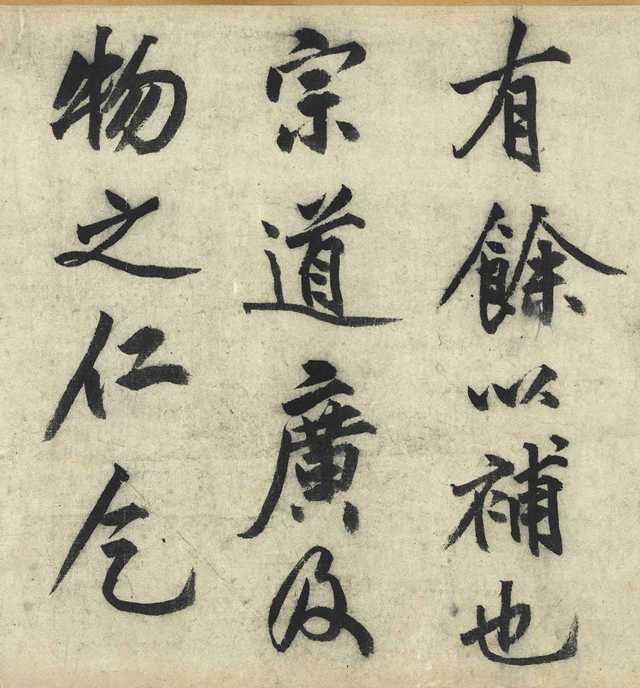 有餘以補也
宗道廣及
物之仁乞